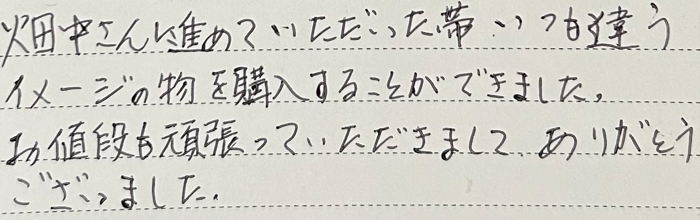 畑中さんに進めていただいった帯いつも違う
イメージの物を購入することができました。
お値段も頑張っていただきまして、ありがとう
ございました.